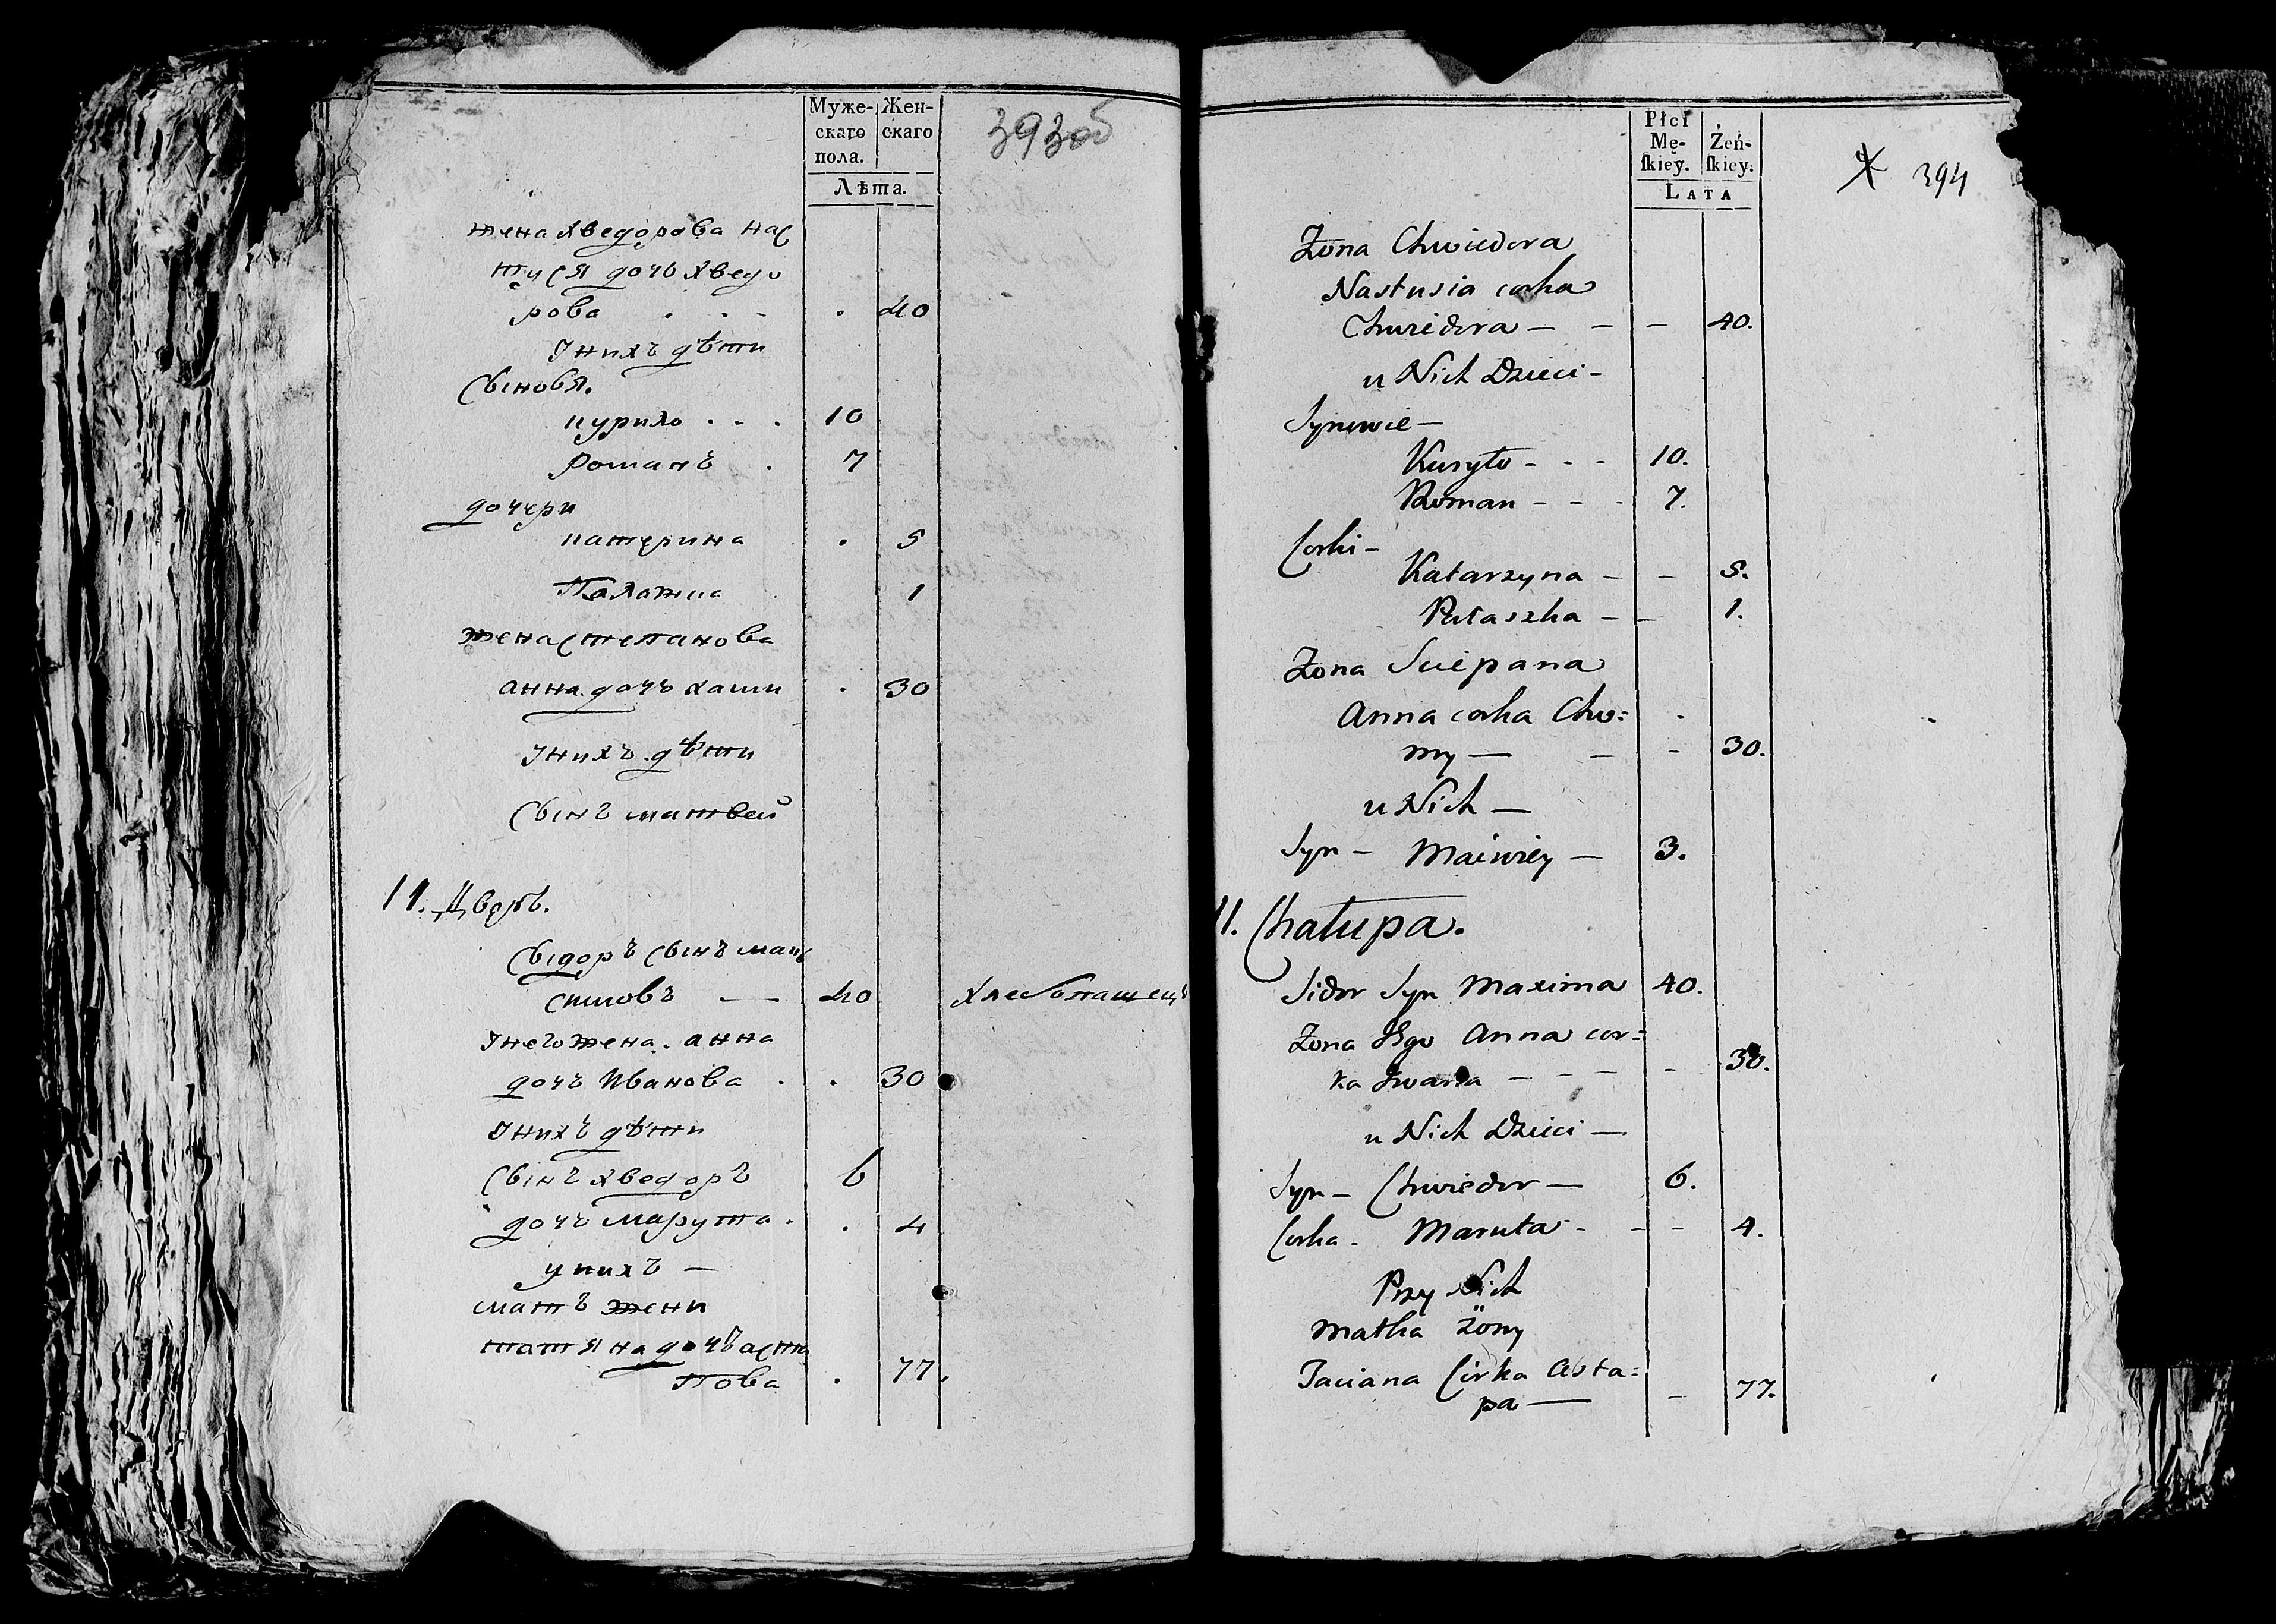 Муже-
скаго
пола.
Жен-
скаго
Лѣта.
393об
жена хведорова нас
туся дочь хведо
рова . . - . 40
Уних ъ дѣти
Сыновя.
курило . . . 10
романъ . 7
дочери
катерина . 5
Палажка 1
жена степанова
анна дочъ хоми . 30
Унихъ дѣти
Сынъ матвей
11. Дворъ.
Сыдоръ сынъ мак
симовъ — 40 хлебопашецъ
Унего жена. анна
дочъ Иванова . . 30
Унихъ дѣти
Сынъ хведоръ 6
дочъ марута . . 4
унихъ —
матъ жени
татяна дочъ аста
пова . 77.
Płci
Mę-
ſkiey.
Żeń-
ſkiey.
LATA
394
Żona Chwiedora
Nastusia corka
Chwiedora — - - 40.
u Nich Dzieci -
Synowie —
Kuryło - - - 10.
Roman - - - 7.
Corki -
Katarzyna - - 5.
Pałaszka - - 1.
Żona Sciepana
Anna corka Cho=
my — - - 30.
u Nich —
Syn - Maćwiey — 3.
11. Chałupa.
Sidor Syn Maxima 40.
Żona Jego Anna cor=
ka Iwana - - - - 30.
u Nich Dzieci —
Syn - Chwiedor — 6.
Corka - Maruta - - - 4.
Przy Nich
Matka żony
Taciana Córka Asta=
pa — - 77.